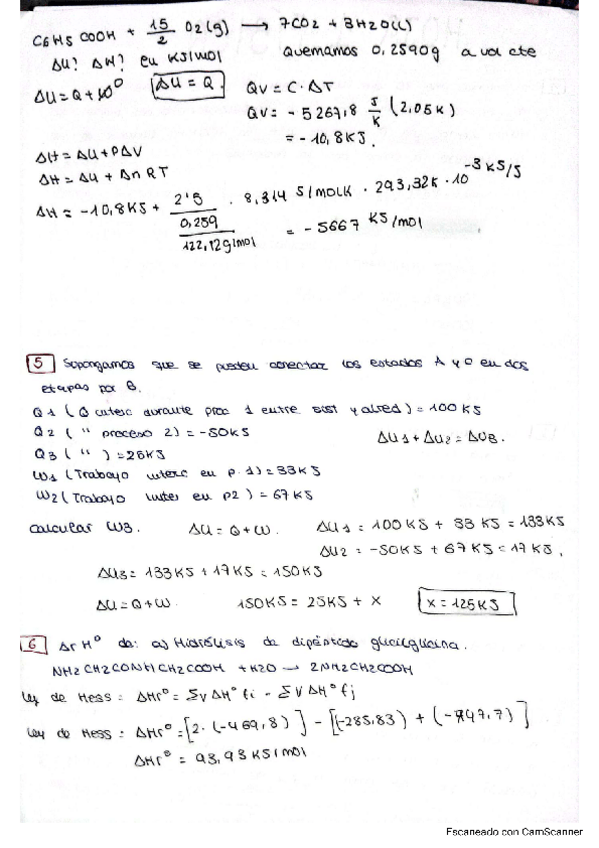 C6H5 COOH + 15/2 O2(g) → 7CO2 + 3H2O(l)
ΔU? ΔH? en KJ/mol Quemamos 0,2590g a vol cte
ΔU = Q + W⁰ ΔU = Q. QV = C·ΔT
QV = - 5267,8 J/K (2,05K)
= -10,8KJ.
ΔH = ΔU + PΔV
ΔH = ΔU + Δn RT
ΔH = -10,8KJ + 2'5 / (0,259 / 122,12g/mol) · 8,314 J/molK · 293,32K · 10⁻³ KJ/J = -5667 KJ/mol
5 Supongamos que se pueden conectar los estados A y D en dos
etapas por B.
Q1 ( Q interc durante proc 1 entre sist y alred) = 100 KJ
Q2 ( " proceso 2) = -50KJ
Q3 ( " ) = 25KJ ΔU1 + ΔU2 = ΔU3.
W1 (Trabajo interc en p. 1) = 33KJ
W2 (Trabajo interc en p2) = 67 KJ
Calcular W3. ΔU = Q + W. ΔU1 = 100KJ + 33 KJ = 133KJ
ΔU2 = -50KJ + 67KJ = 17 KJ.
ΔU3 = 133KJ + 17KJ = 150KJ
ΔU = Q + W 150KJ = 25KJ + X X = 125KJ
6 ΔrH⁰ de: a) Hidrólisis de dipéptido glicilglicina.
NH2CH2CONHCH2COOH + H2O → 2NH2CH2COOH
Ley de Hess: ΔHr⁰ = ΣνΔH⁰fi - ΣνΔH⁰fj
Ley de Hess: ΔHr⁰ = [2·(-469,8)] - [(-285,83) + (-747,7)]
ΔHr⁰ = 93,93KJ/mol
Escaneado con CamScanner